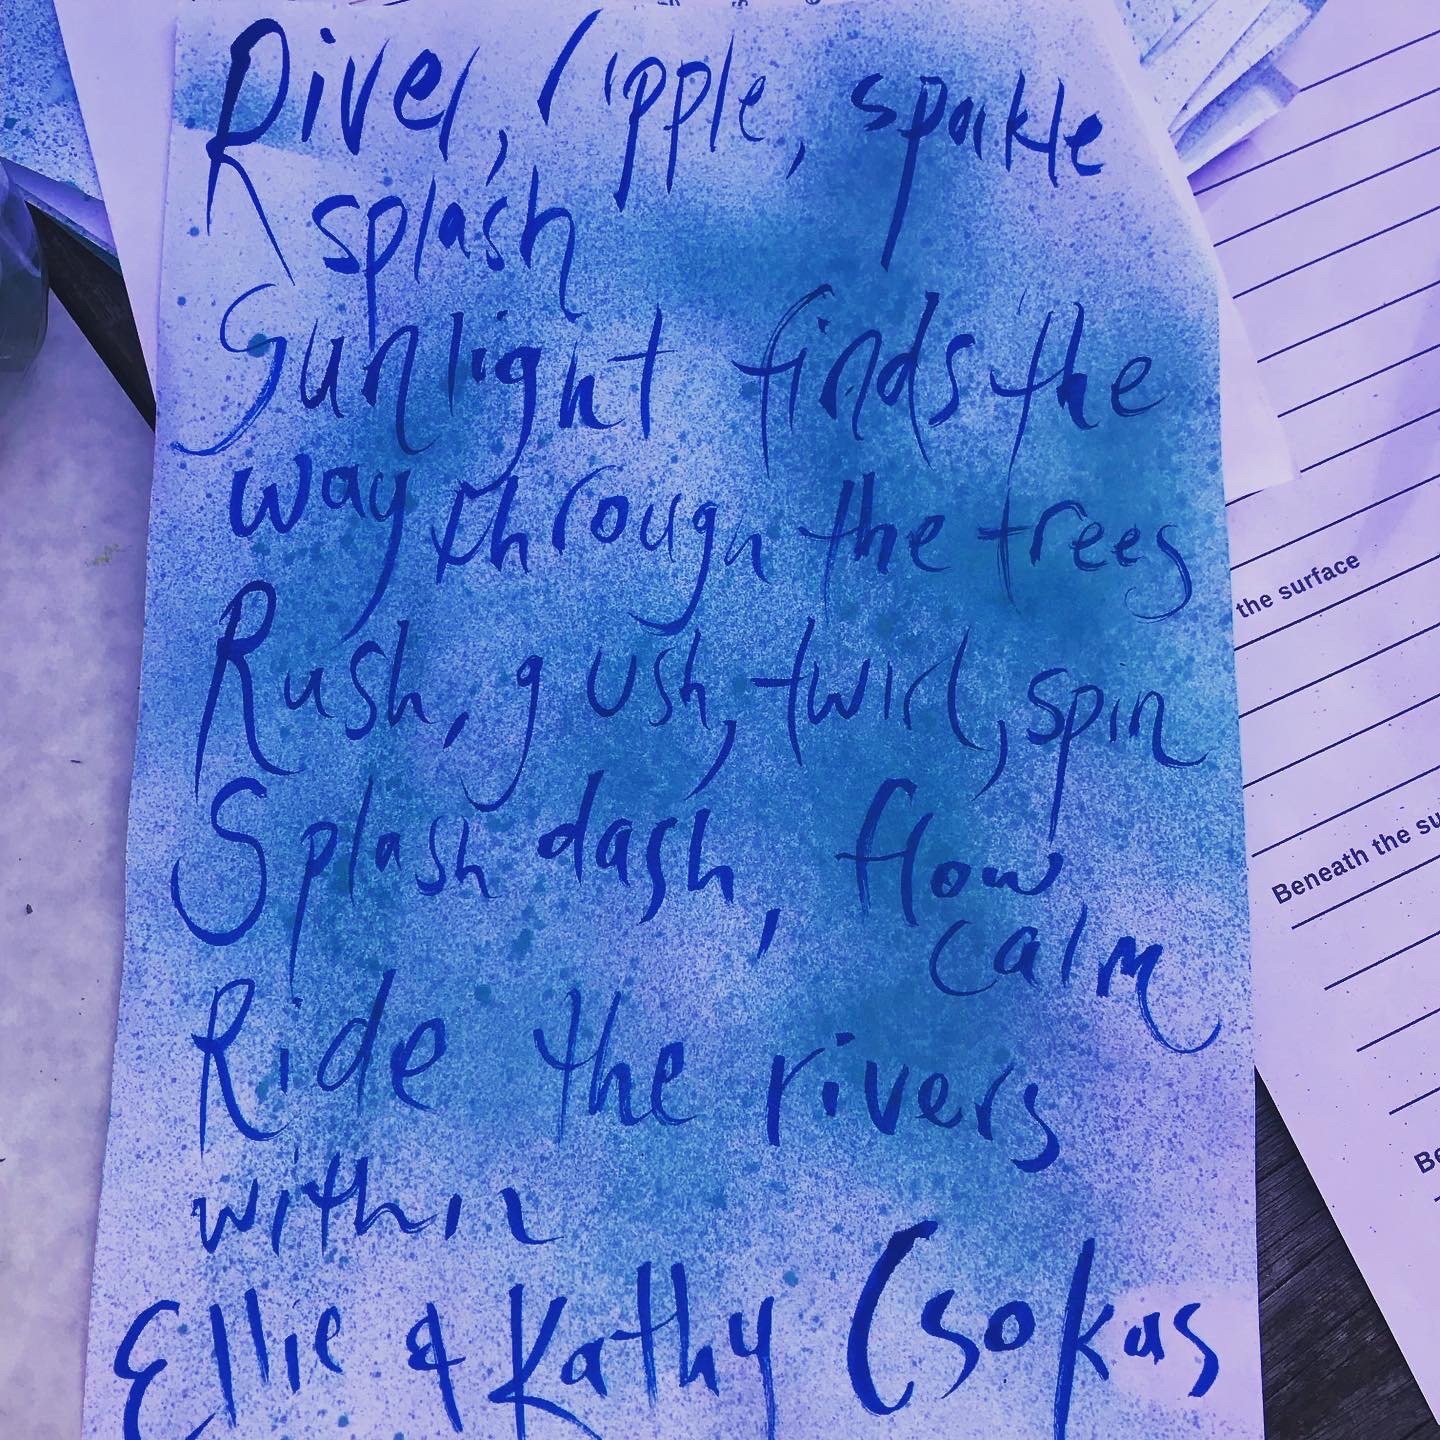 River, ripple, sparkle
splash
Sunlight finds the
way through the trees
Rush, gush, twirl, spin
Splash dash, flow
calm
Ride the rivers
within
Ellie & Kathy Csokas
the surface
Beneath the su
Be